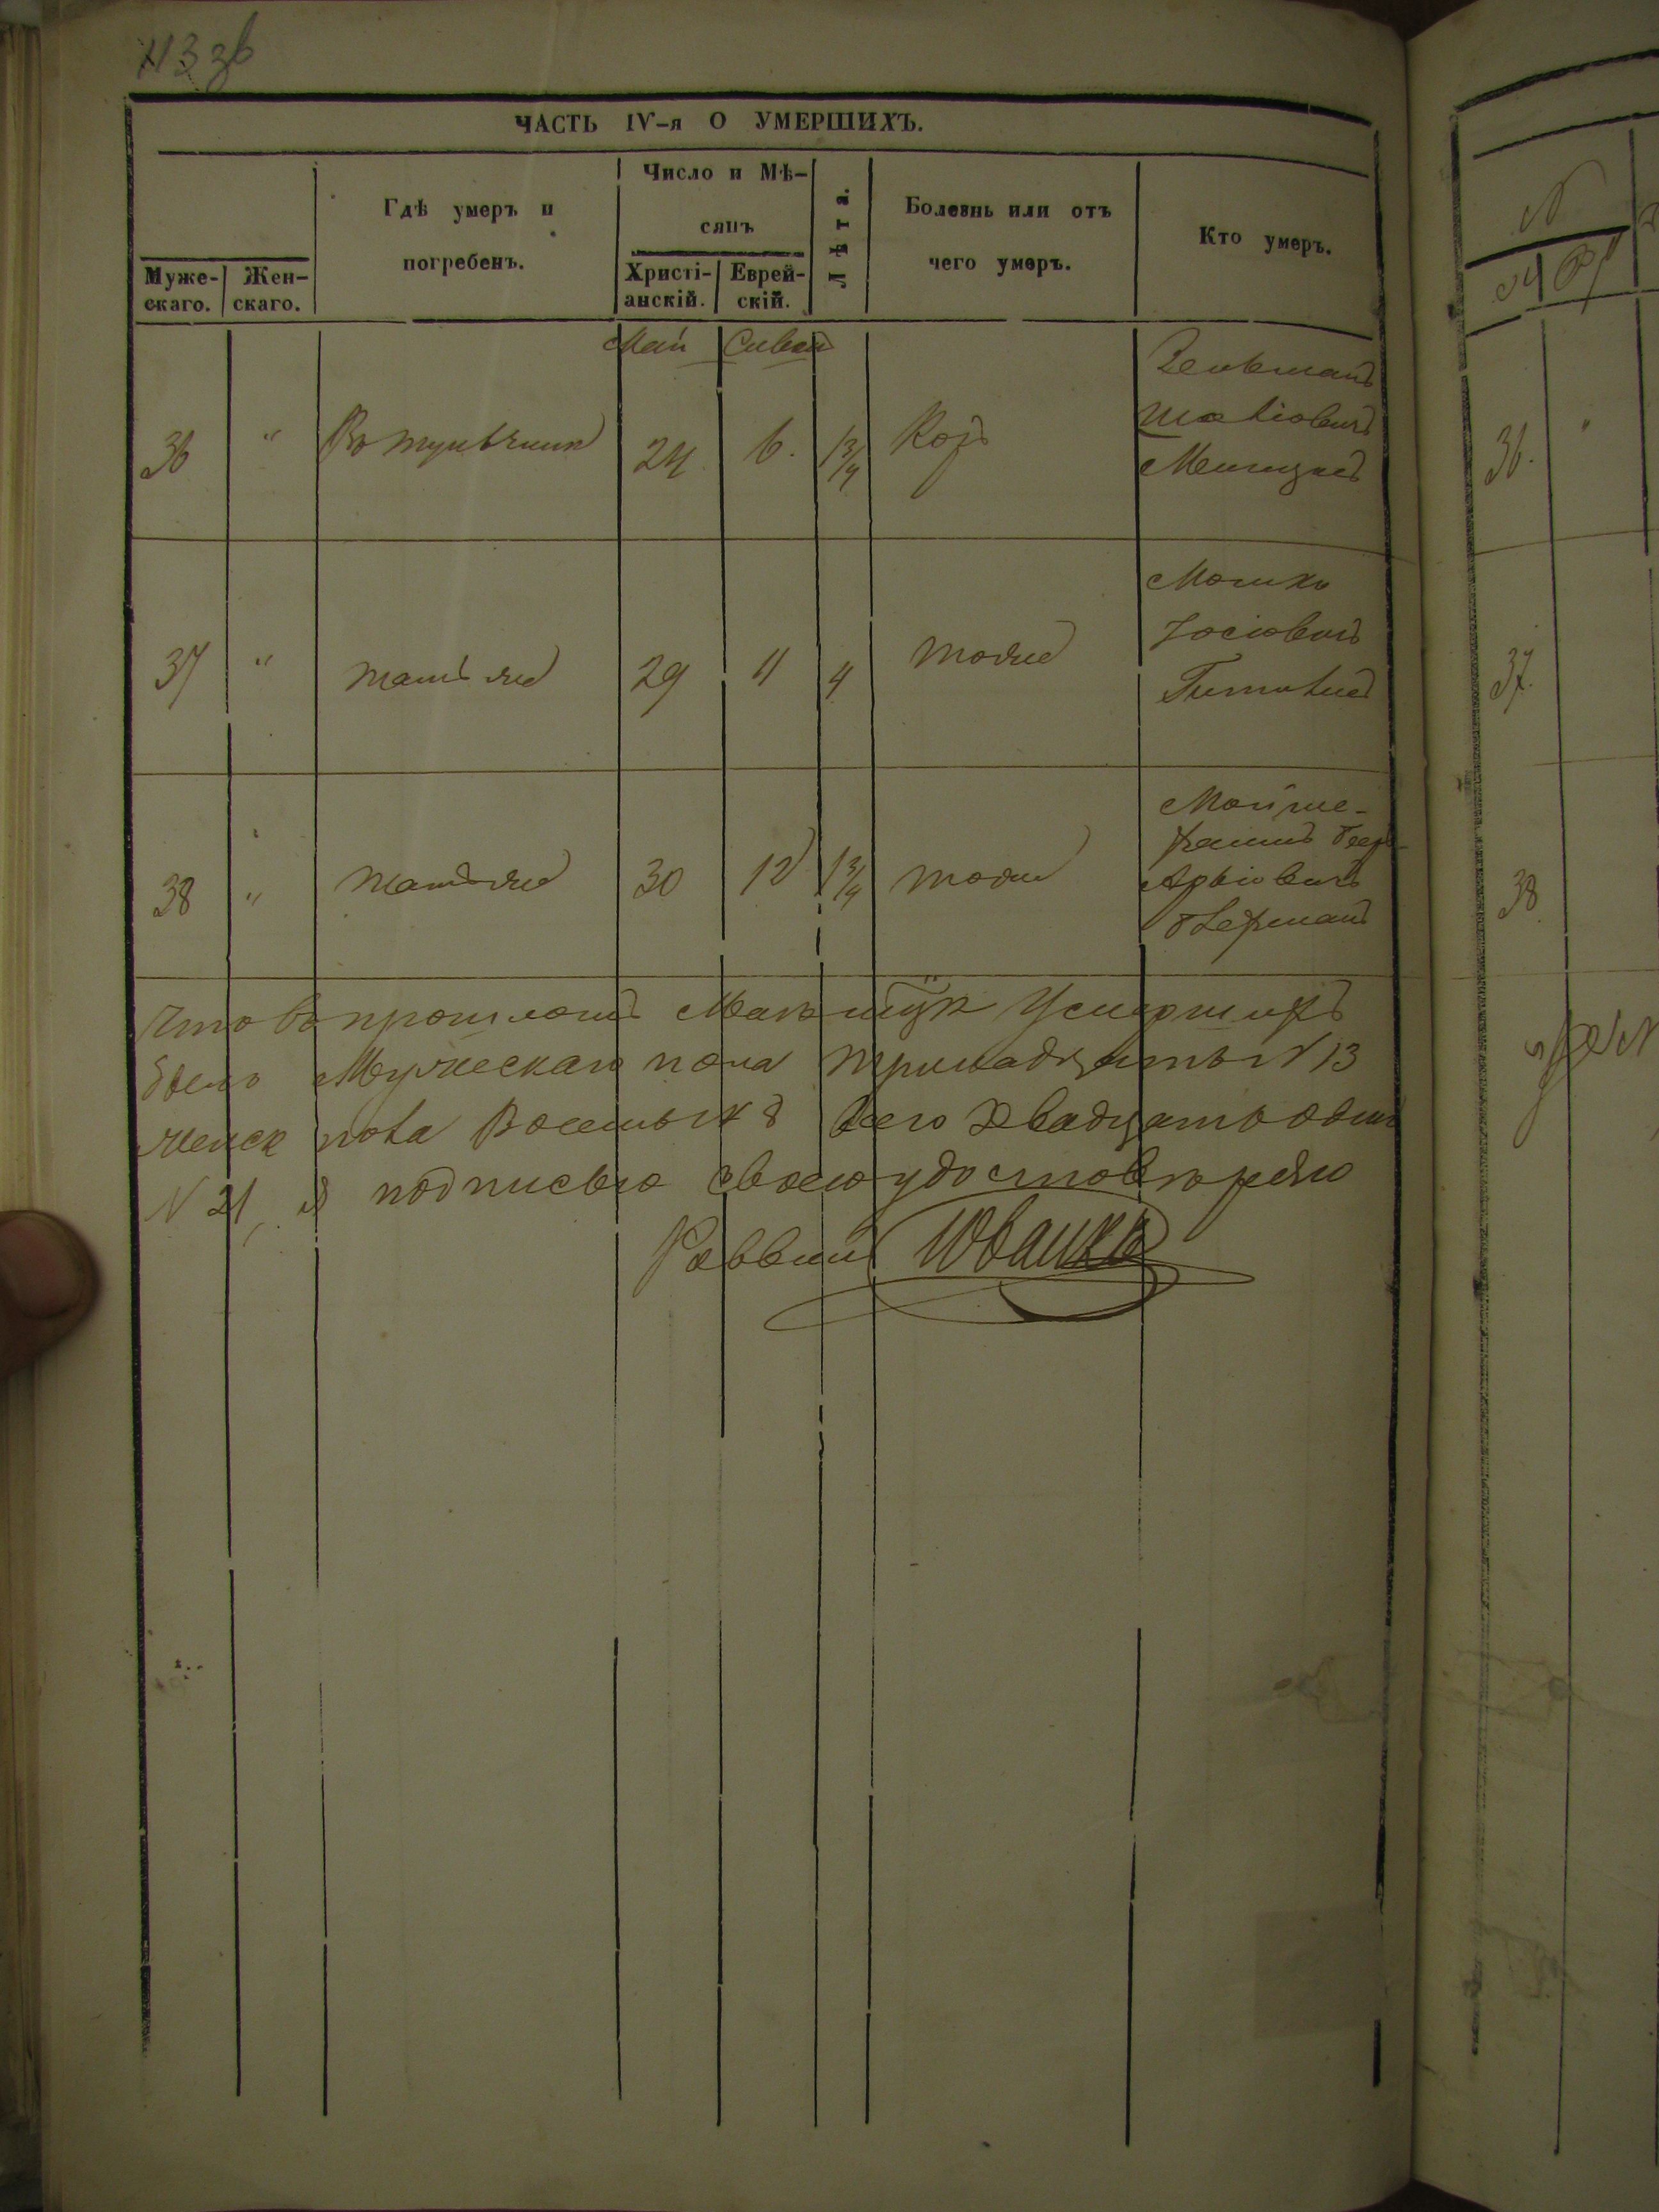 ЧАСТЬ IV-я О УМЕРШИХЪ.
Муже-скаго.
Жен-скаго.
Гдѣ умеръ и
погребенъ.
Число и Мѣ-
сяцъ
Христі-анскій.
Еврей-скій.
Лѣта.
Болезнь или отъ
чего умеръ.
Кто умеръ.
Май Сиванъ
36 " Въ Тульчинѣ 24 6. 1 3/4 Корь
Зельманъ
37 " тамъ же 29 11 4 тоже
Мошко
Іосіовичъ
38 " тамъ же 30 12 1 3/4 тоже
Мойше-
Хаимъ Бер-
Что въ прошломъ Маѣ м-цѣ Умершихъ
было Мужескаго пола тринадцать N 13
женск пола Восемь N 8 Всего Двадцать одинъ
N 21, я подписью своею удостовѣряю
Раввинъ
36.
37.
38